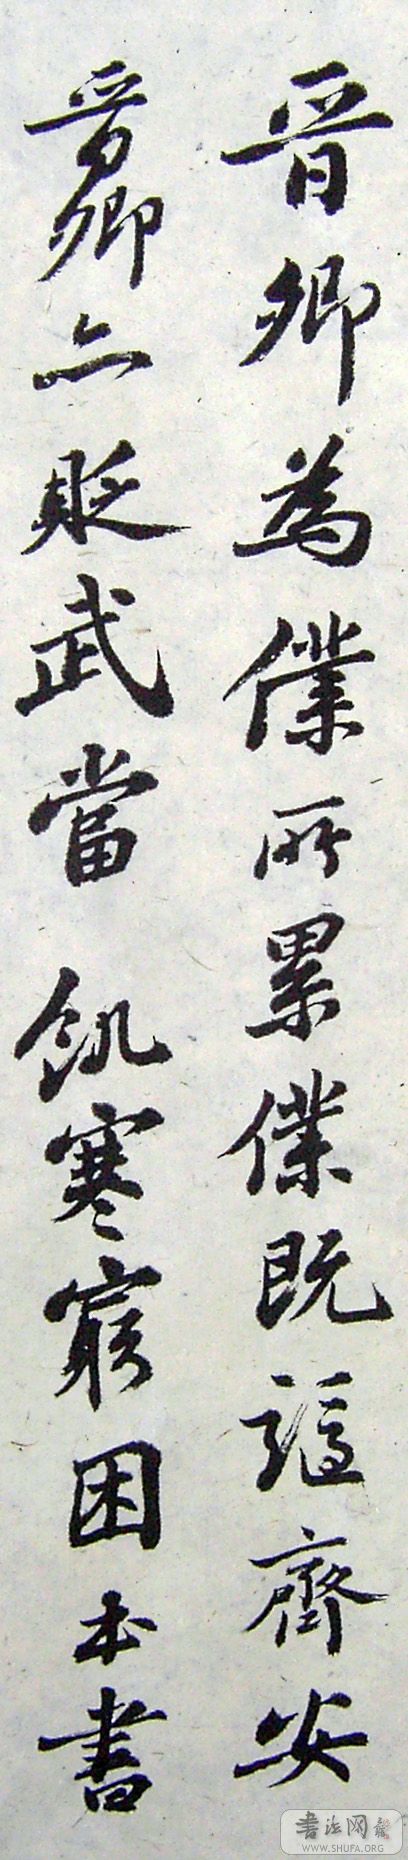 晋卿為僕所累僕既謫齊安
晋卿亦貶武當飢寒窮困本書
書法网
WWW.SHUFA.ORG